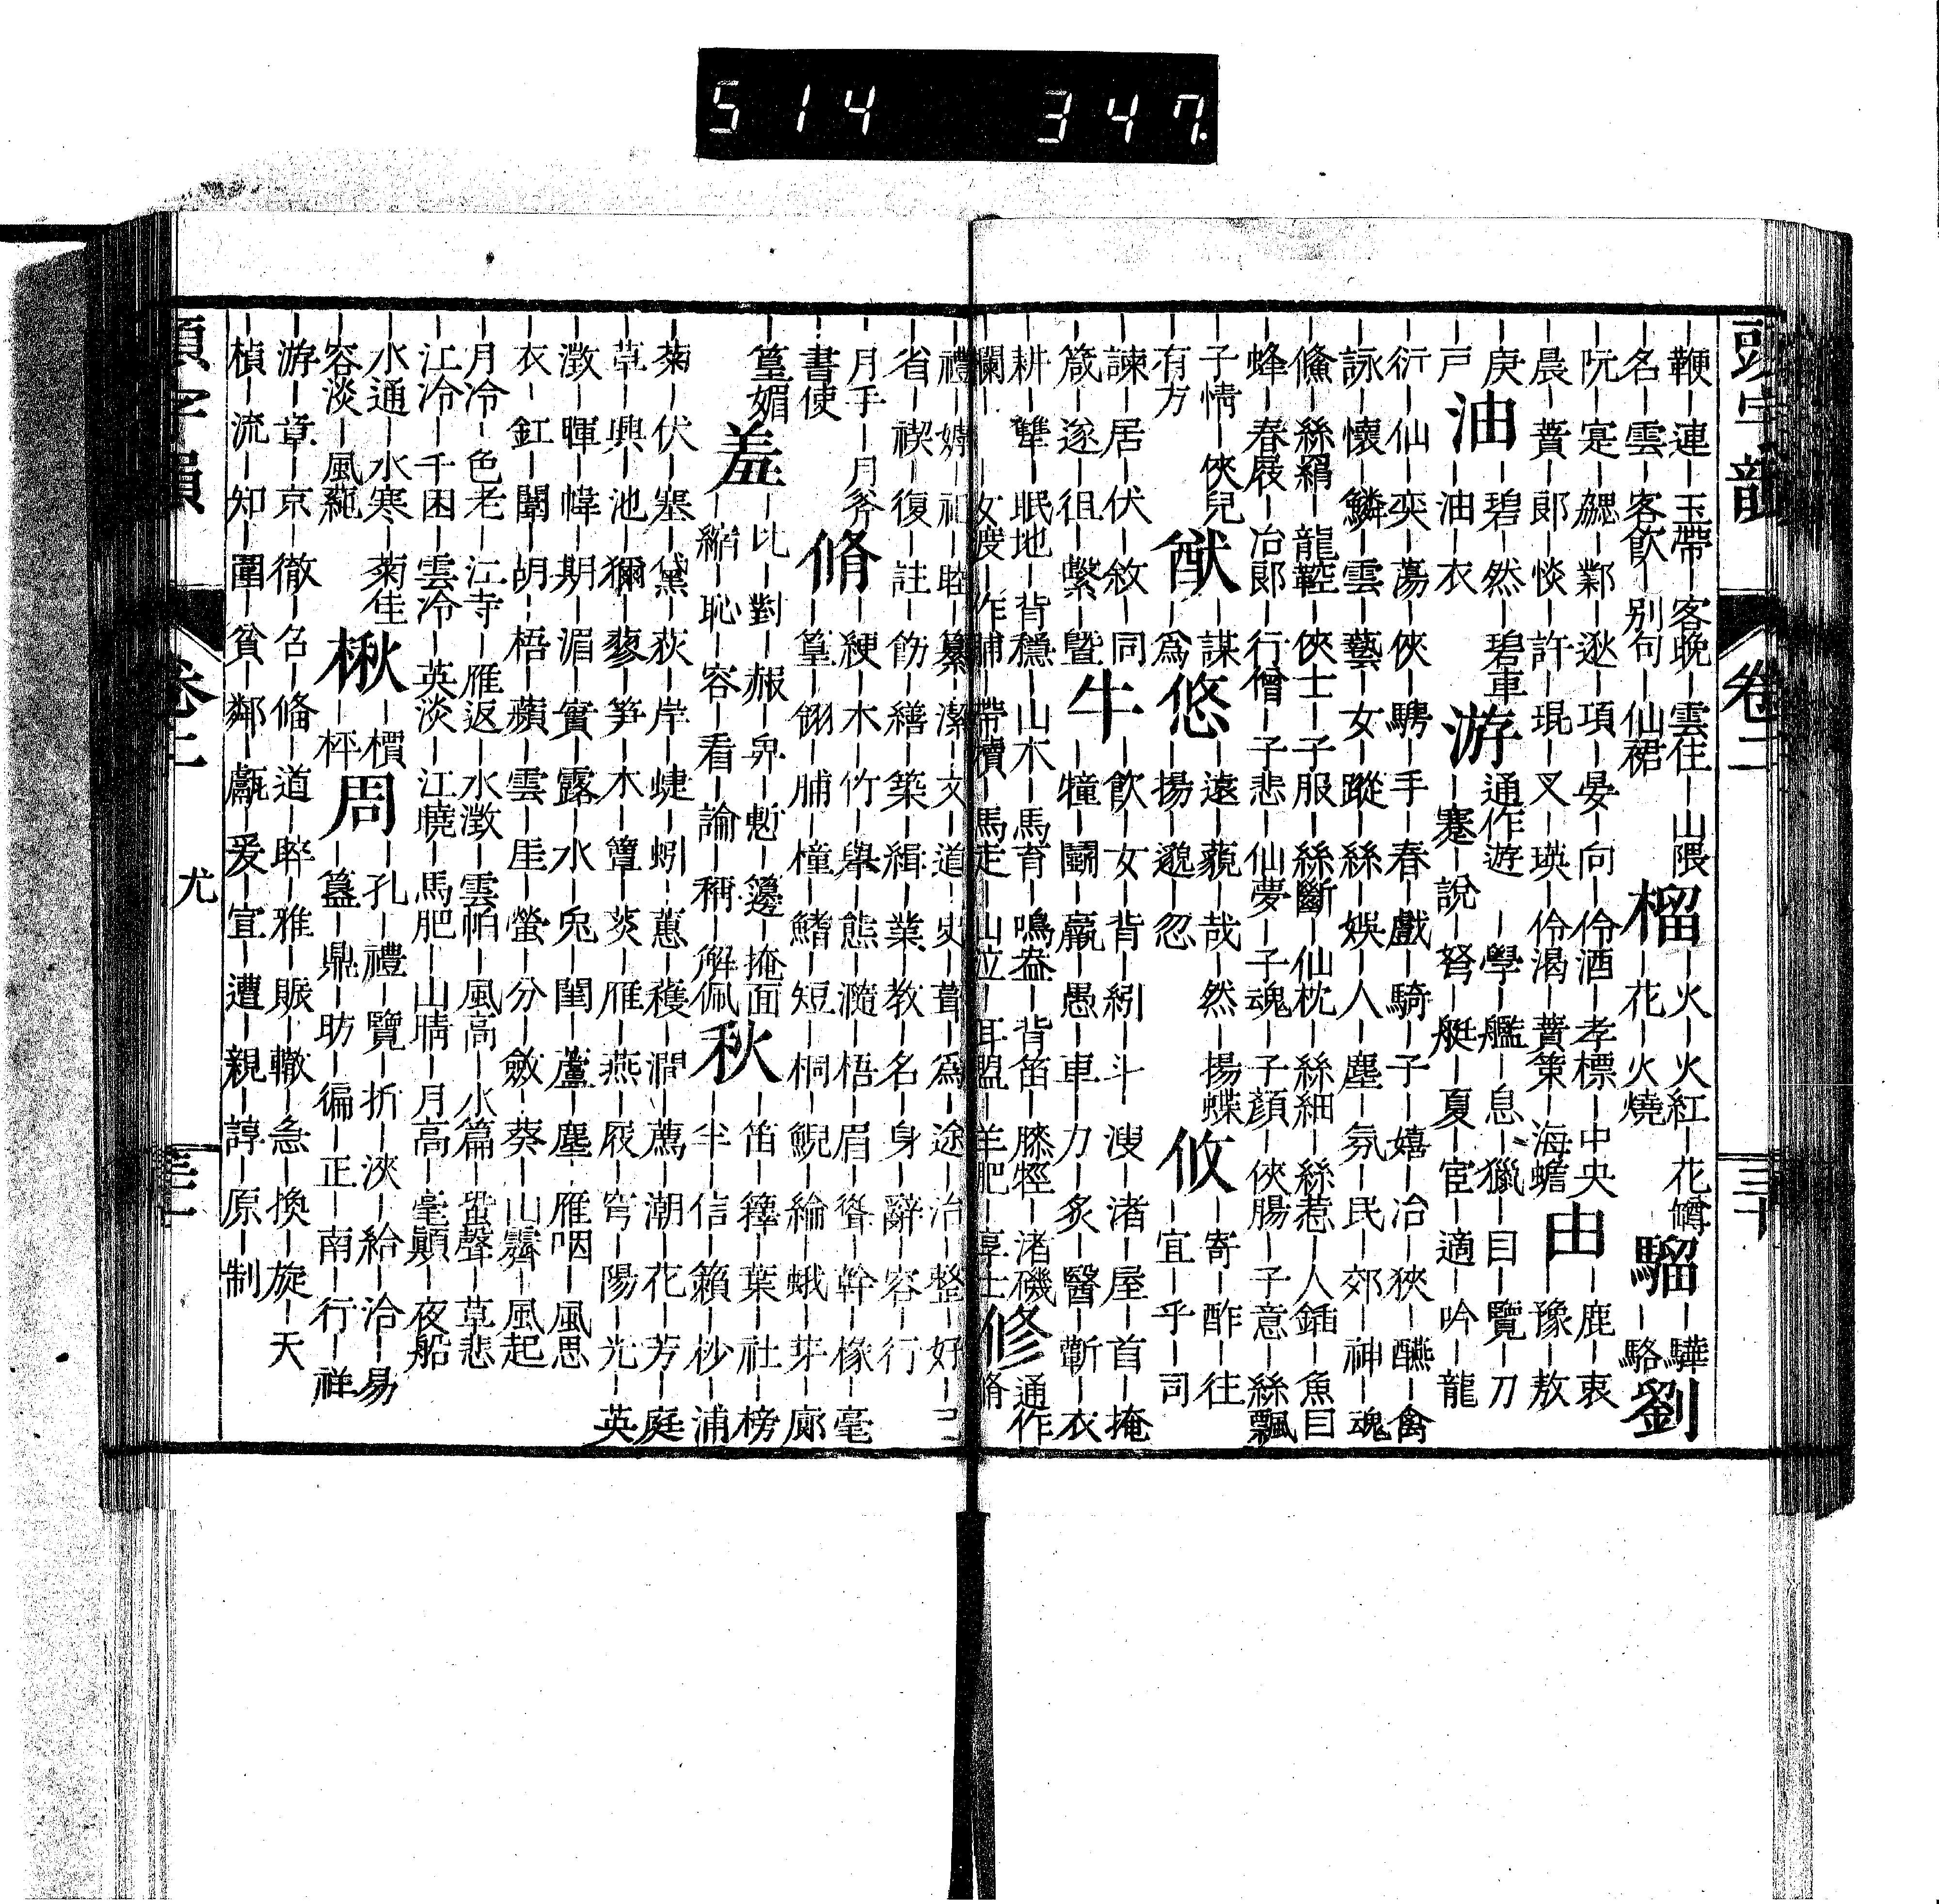 頭字韻 卷二 三十
｜鞭｜連｜玉帶｜客晚｜雲住｜山隈
｜名｜雲｜客飮｜別句｜仙裙
榴
｜火｜火紅｜花罇
｜花｜火燒
騮
｜驊
｜駱
劉
｜阮｜寔｜勰｜鄴｜逖｜項｜晏｜向｜伶酒｜孝標｜中央
｜晨｜蕡｜郞｜惔｜許｜琨｜叉｜瑛｜伶渴｜蕡策｜海蟾
由
｜鹿｜衷
｜豫｜敖
｜庚
｜戸
油
｜碧｜然｜碧車
｜油｜衣
游
通作遊｜學｜艦｜息｜獵｜目｜覽｜刀
｜蹇｜說｜弩｜艇｜夏｜宦｜適｜吟｜龍
｜衍｜仙｜奕｜蕩｜俠｜騁｜手｜春｜戲｜騎｜子｜嬉｜冶｜狹｜醼｜禽
｜詠｜懷｜鱗｜雲｜藝｜女｜蹤｜絲｜娛｜人｜塵｜氛｜民｜郊｜神｜魂
｜鯈｜絲羂｜龍鞚｜俠士｜子服｜絲斷｜仙枕｜絲細｜絲惹｜人鍤｜魚目
｜蜂｜春屐｜冶郞｜行僧｜子悲｜仙夢｜子魂｜子顏｜俠腸｜子意｜絲飄
｜子情｜俠兒
｜有方
猷
｜謀
｜爲
悠
｜遠｜藐｜哉｜然｜揚蝶
｜揚｜邈｜忽
攸
｜寄｜酢｜往
｜宜｜乎｜司
｜諫｜居｜伏｜敘｜同
｜箴｜遂｜徂｜繫｜曁
牛
｜飮｜女｜背｜紖｜斗｜溲｜渚｜屋｜首｜掩
｜犝｜鬭｜羸｜愚｜車｜力｜炙｜醫｜蘄｜衣
｜耕｜犨｜眠地｜背穩｜山木｜馬育｜鳴盎｜背笛｜滕牼｜渚磯
｜欄｜女渡｜作脯｜帶犢｜馬走｜山立｜耳盟｜羊肥｜享士
修
通作
脩
｜禮｜嫮｜祀｜睦｜纂｜潔｜文｜道｜史｜眘｜爲｜途｜治｜整｜好｜己
｜省｜禊｜復｜註｜飭｜繕｜築｜緝｜業｜教｜名｜身｜辭｜容｜行
｜月手｜月斧
｜書使
脩
｜綆｜木｜竹｜擧｜態｜瀡｜梧｜眉｜聳｜幹｜椽｜毫
｜篁｜翎｜脯｜橦｜鰭｜短｜桐｜鯢｜綸｜蛾｜芽｜廊
｜篁媚
羞
｜比｜對｜赧｜鼻｜慙｜籩｜掩面
｜縮｜恥｜容｜看｜論｜稱｜解佩
秋
｜笛｜籜｜葉｜社｜榜
｜半｜信｜籟｜杪｜浦
｜菊｜伏｜塞｜黛｜荻｜岸｜蜨｜蚓｜蕙｜穫｜澗｜薦｜潮｜花｜芳｜庭
｜草｜興｜池｜獮｜蓼｜笋｜木｜簟｜菼｜雁｜燕｜屐｜穹｜陽｜光｜英
｜澂｜暉｜幃｜期｜湄｜實｜露｜水｜兔｜閨｜蘆｜塵｜雁咽｜風思
｜衣｜釭｜闈｜胡｜梧｜蘋｜雲｜厓｜螢｜分｜斂｜葵｜山霽｜風起
｜月冷｜色老｜江寺｜雁返｜水澂｜雲帕｜風高｜水篇｜蛩聲｜草悲
｜江冷｜千困｜雲冷｜英淡｜江曉｜馬肥｜山晴｜月高｜毫顚｜夜船
｜水通｜水寒｜菊佳
｜容淡｜風蒓
楸
｜檟
｜枰
周
｜孔｜禮｜覽｜折｜浹｜給｜洽｜易
｜簋｜鼎｜昉｜徧｜正｜南｜行｜祥
｜游｜章｜京｜徹｜召｜脩｜道｜晬｜雅｜賑｜轍｜急｜換｜旋｜天
｜楨｜流｜知｜圍｜貧｜鄰｜甗｜爰｜宣｜遭｜親｜諄｜原｜制
頭字韻 卷二 尤